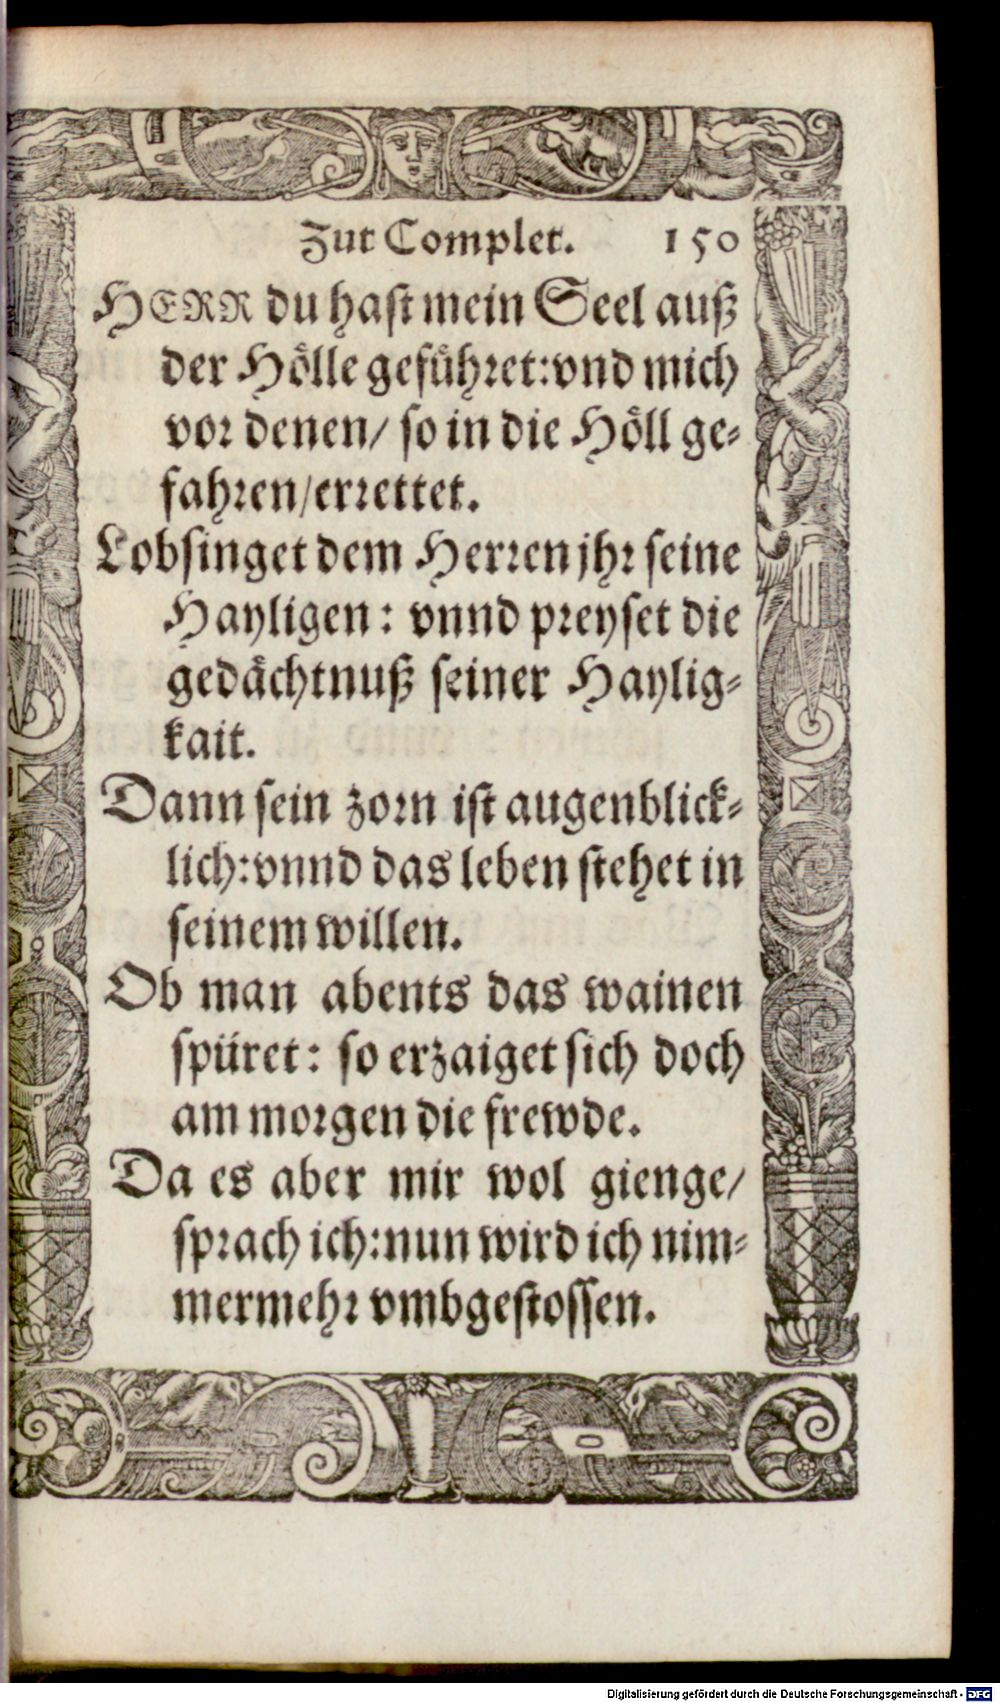 Zur Complet. 150
HERR du hast mein Seel auß
der Hölle geführet: vnd mich
vor denen/ so in die Höll ge-
fahren/ errettet.
Lobsinget dem Herren jhr seine
Hayligen: vnnd preyset die
gedächtnuß seiner Haylig-
kait.
Dann sein zorn ist augenblick-
lich: vnnd das leben stehet in
seinem willen.
Ob man abents das wainen
spüret: so erzaiget sich doch
am morgen die frewde.
Da es aber mir wol gienge/
sprach ich: nun wird ich nim-
mermehr vmbgestossen.
Digitalisierung gefördert durch die Deutsche Forschungsgemeinschaft - DFG